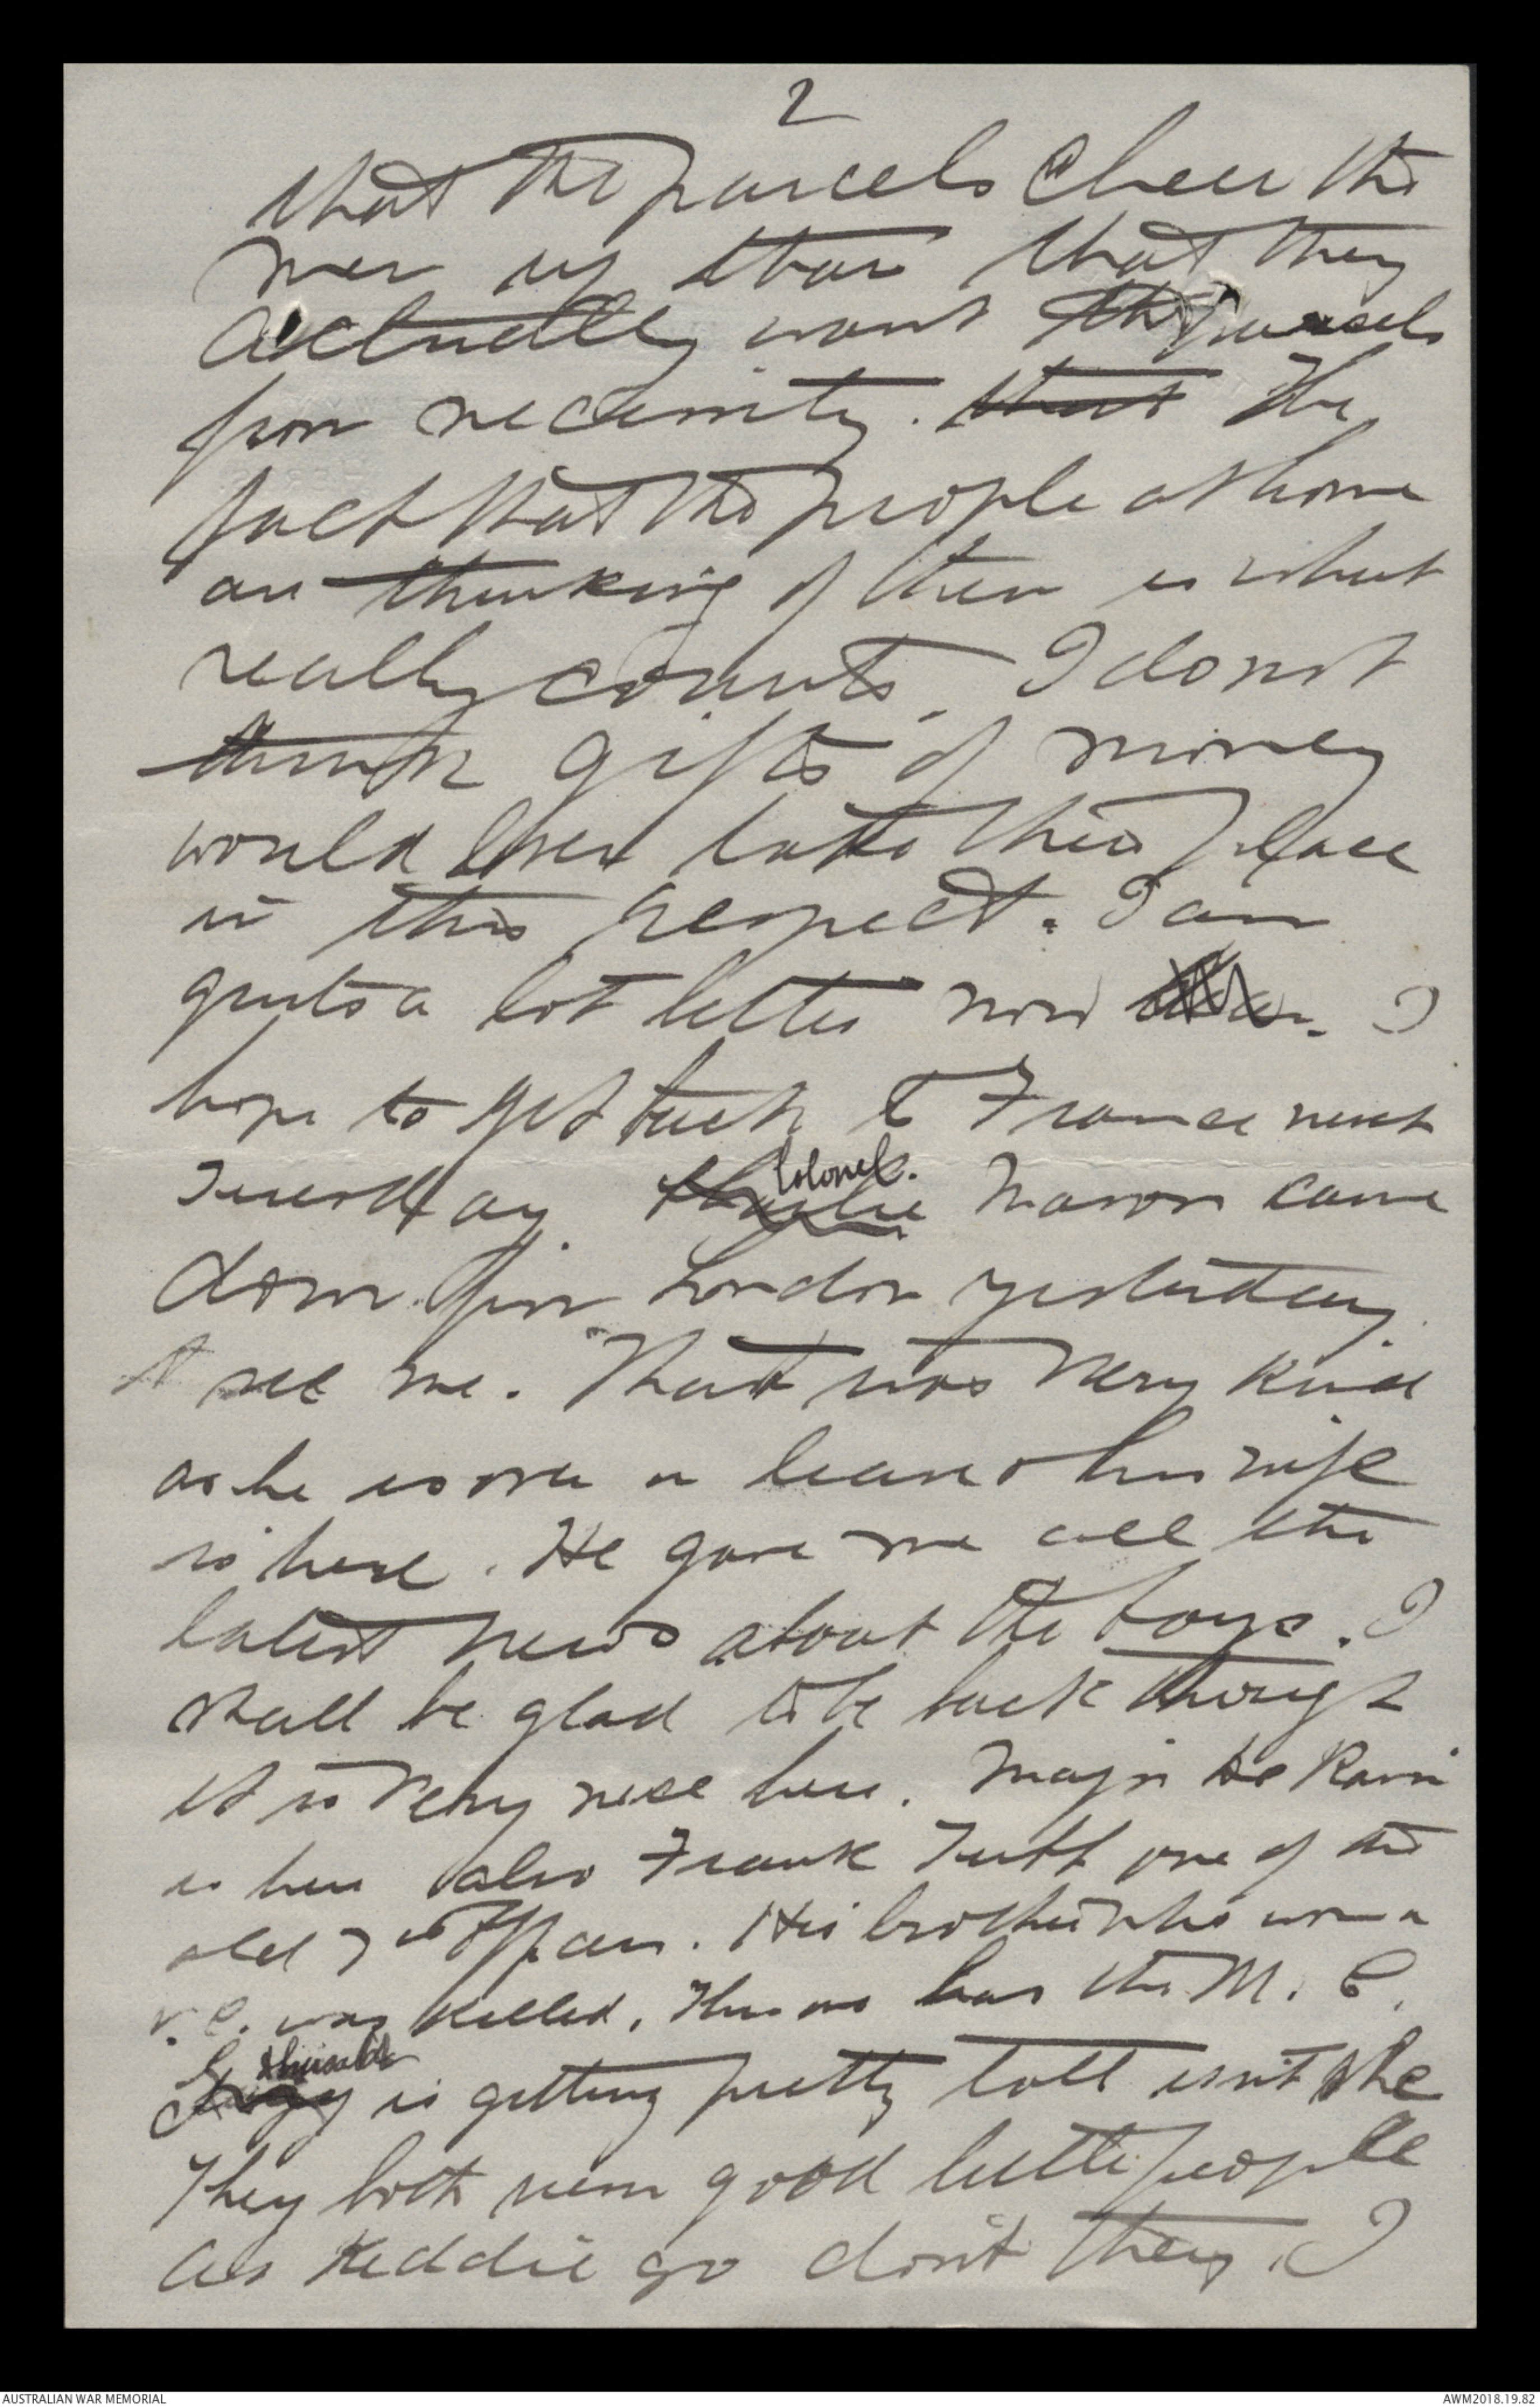 2
that the parcels cheer the
men up than that they
actually want the parcels
from necessity. that The
fact that the people at home
are thinking of them is what
really counts. I do not
think gifts of money
would ever take their place
in this respect. I am
quite a lot better now I
hope to get back to France next
Tuesday. Charlie Colonel. Mason came
down from London yesterday
to see me. That was very kind
as he is over on leave & his wife
is here. He gave me all the
latest news about the boys. I
shall be glad to be back though
it is very nice here. Major De Ravin
is here also Frank Tubb one of the
old 7th Offcers. His brother who won a
V.C. was killed. This one has the M.C.
is getting pretty tall isn't she
They both seem good little people
as Kiddie go don't they. I
AUSTRALIAN WAR MEMORIAL
AWM2018.19.82